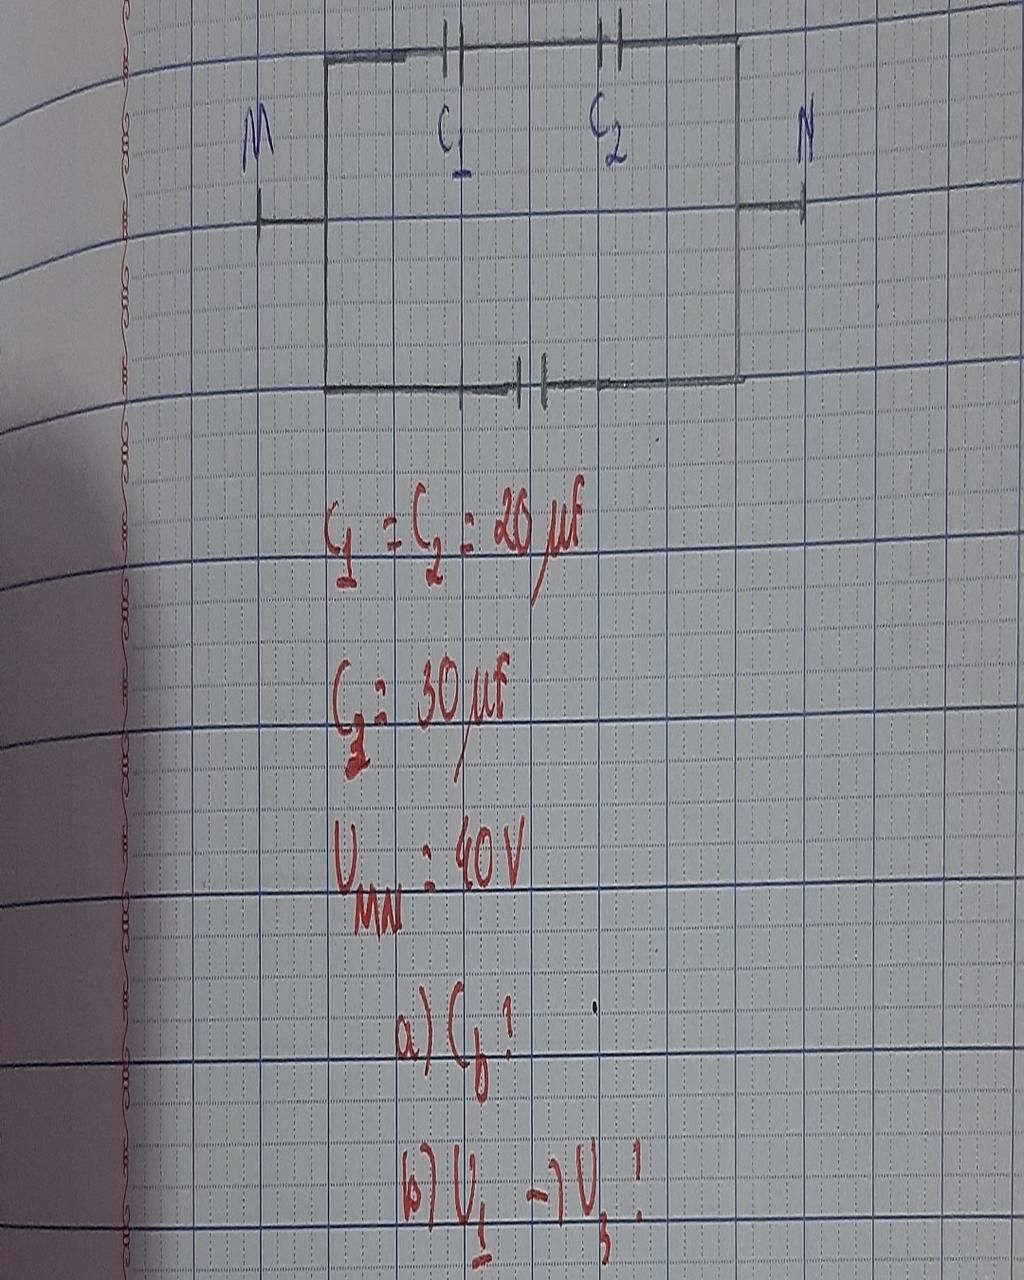 M C1 C2 N
C1 = C2 = 20 μf
C3 = 30 μf
UMN = 40 V
a) Cb?
b) U1 → U3?